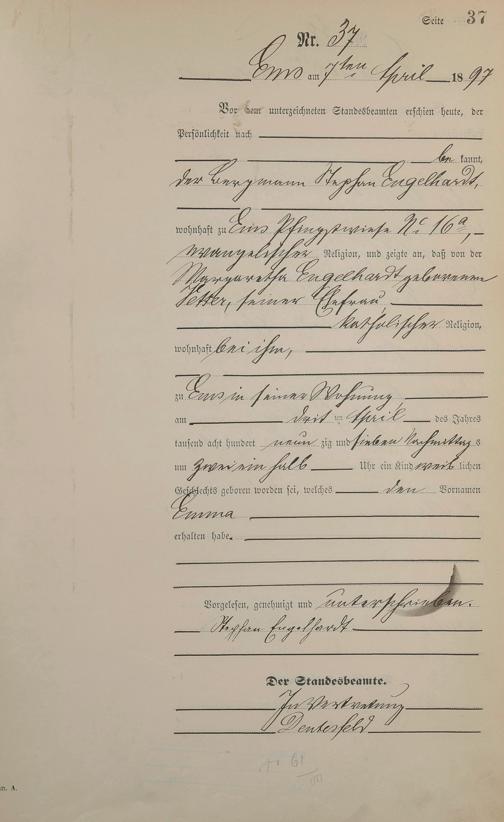 Seite 37
Nr. 37
Ems am 7ten April 1897
Vor dem unterzeichneten Standesbeamten erschien heute, der
Persönlichkeit nach
be kannt,
der Bergmann Stephan Engelhardt,
wohnhaft zu Ems Pfingstwiese No 16a,
evangelischer Religion, und zeigte an, daß von der
Margaretha Engelhardt geborenen
Vetter, seiner Ehefrau,
katholischer Religion,
wohnhaft bei ihm,
zu Ems in seiner Wohnung
am dritten April des Jahres
tausend acht hundert neun zig und sieben Nachmittags
um zweieinhalb Uhr ein Kind weib lichen
Geschlechts geboren worden sei, welches den Vornamen
Emma
erhalten habe.
Vorgelesen, genehmigt und unterschrieben.
Stephan Engelhardt
Der Standesbeamte.
In Vertretung
61
A.